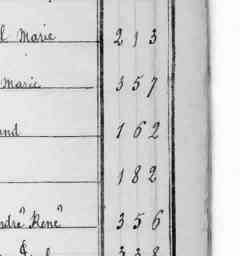 l Marie 213
Marie 357
and 162
182
ndré "René" 356
& 338